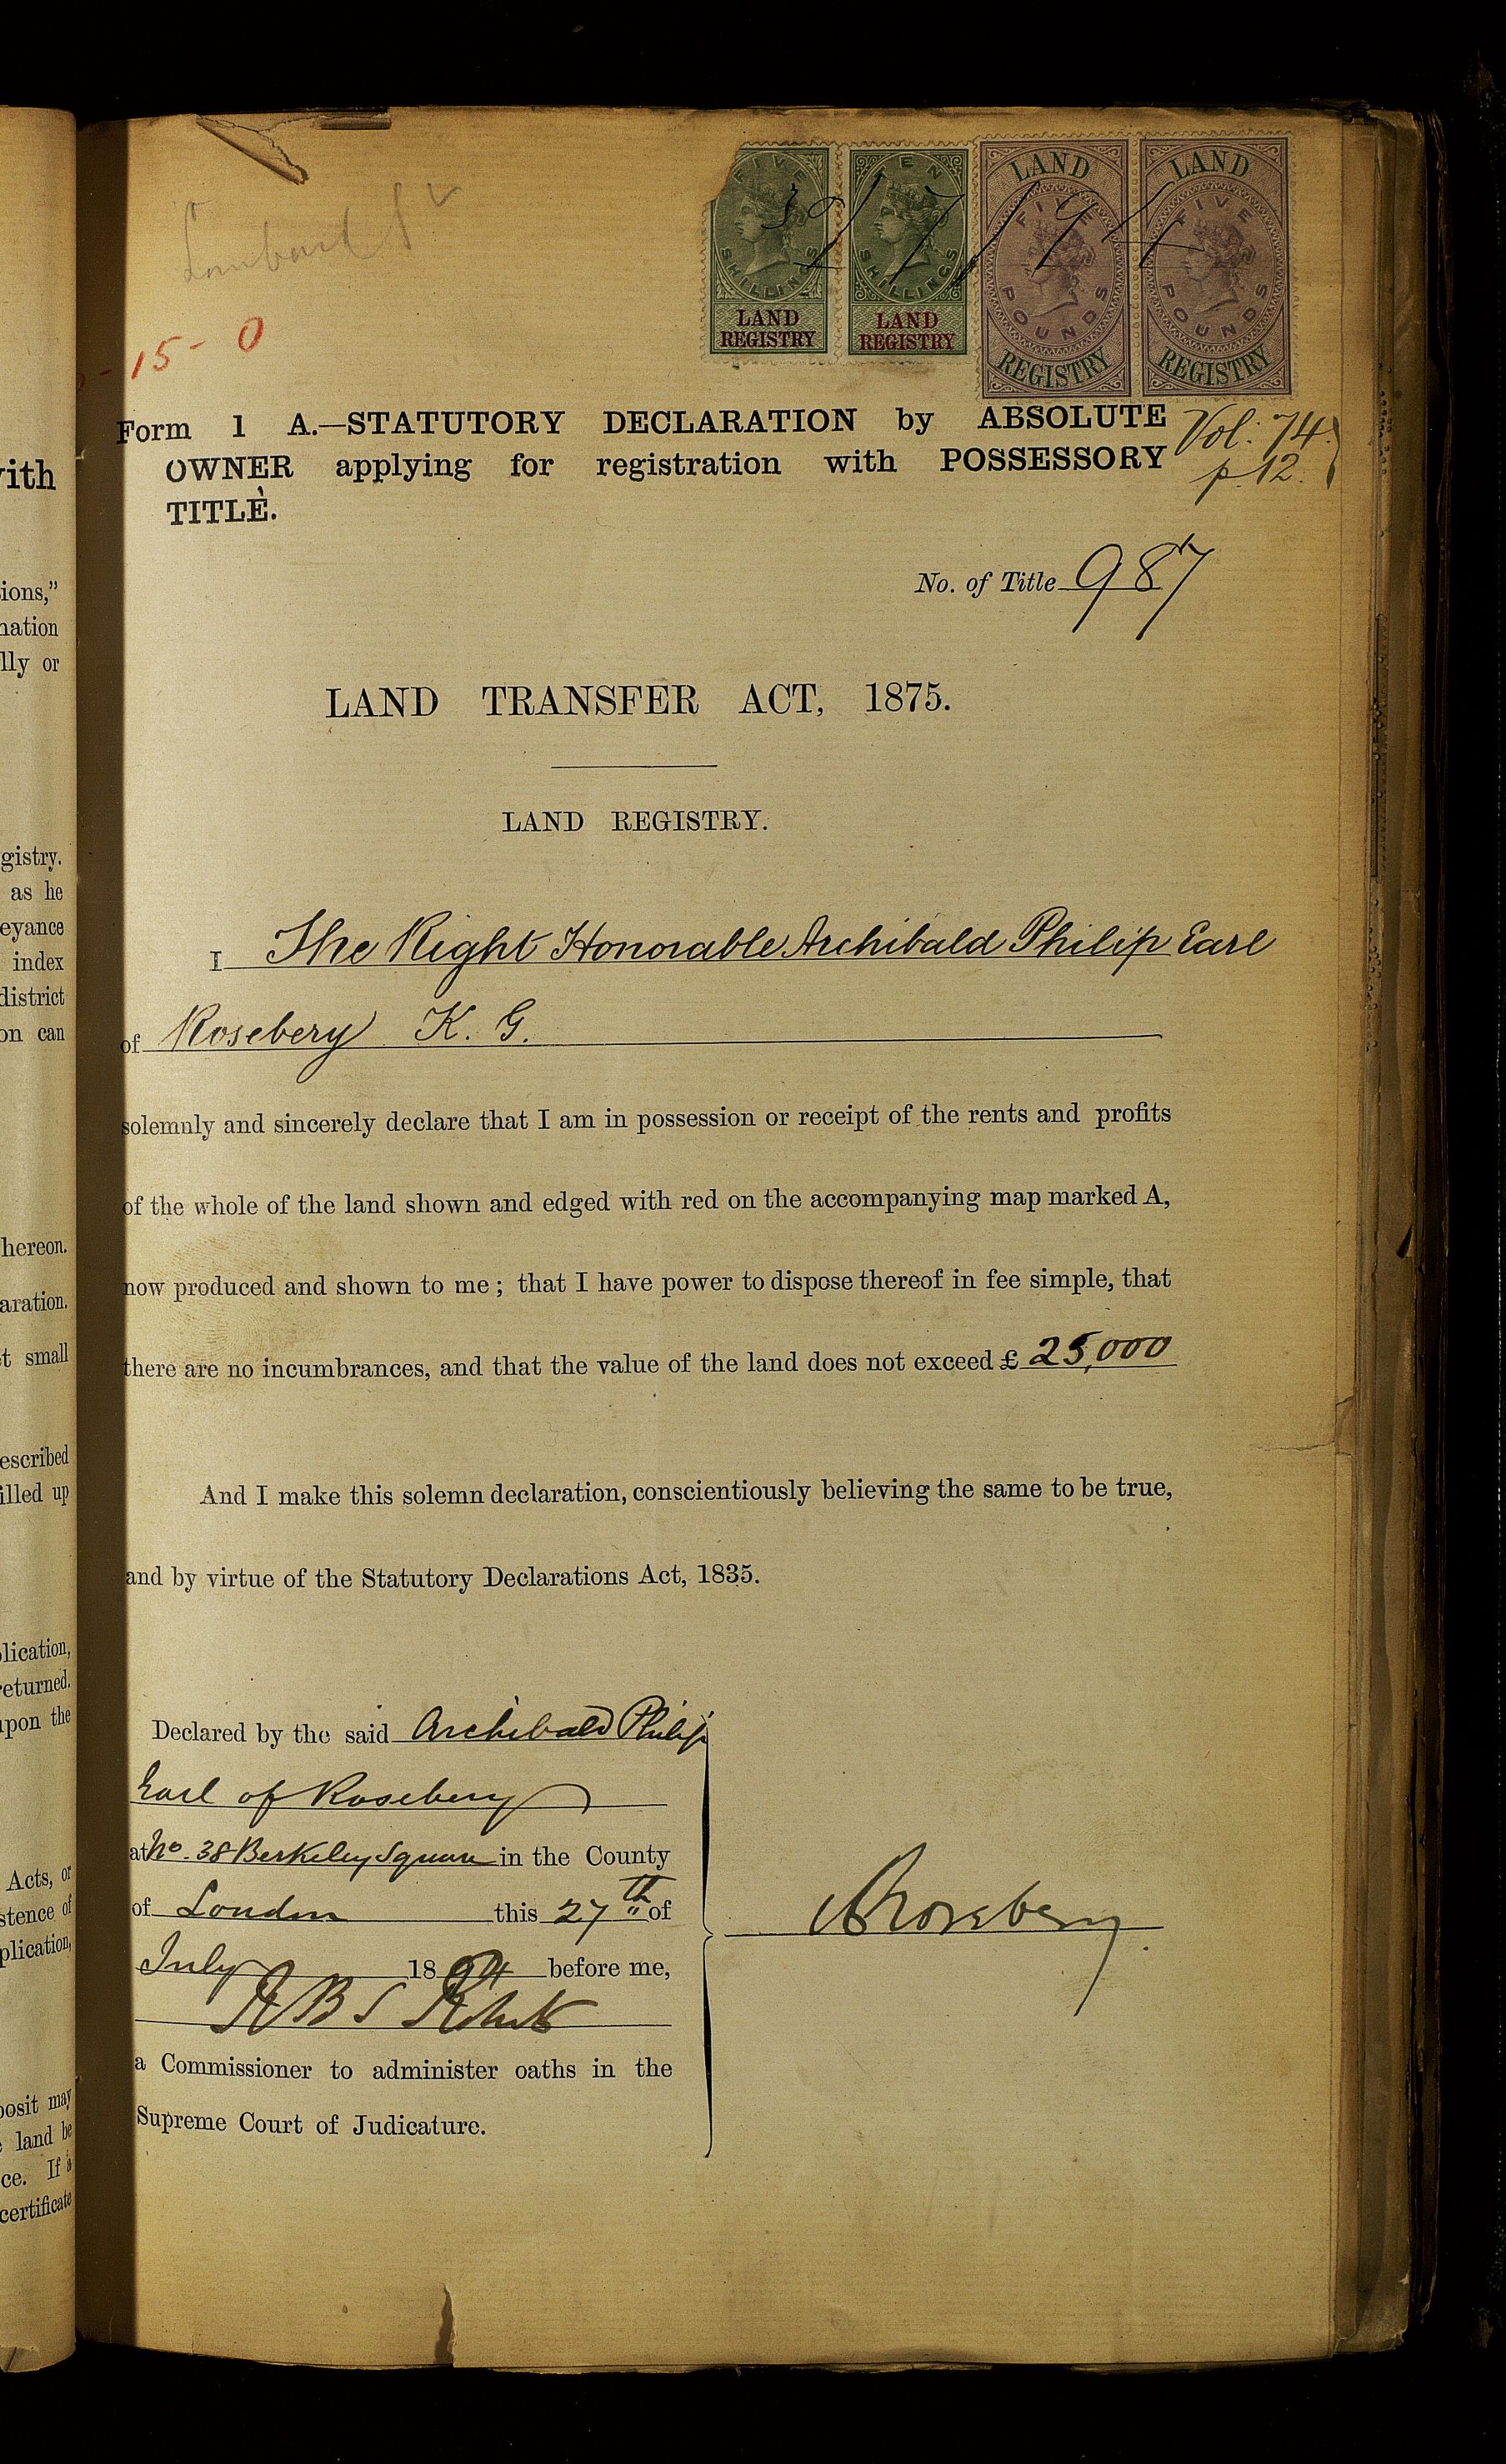 Lombard St
15 - 0
FIVE SHILLINGS LAND REGISTRY
TEN SHILLINGS LAND REGISTRY
LAND FIVE POUNDS REGISTRY
LAND FIVE POUNDS REGISTRY
Form 1 A.—STATUTORY DECLARATION by ABSOLUTE
OWNER applying for registration with POSSESSORY
TITLE.
Vol: 74
p. 12.
No. of Title 987
LAND TRANSFER ACT, 1875.
LAND REGISTRY.
I The Right Honorable Archibald Philip Earl
of Rosebery K. G.
solemnly and sincerely declare that I am in possession or receipt of the rents and profits
of the whole of the land shown and edged with red on the accompanying map marked A,
now produced and shown to me; that I have power to dispose thereof in fee simple, that
there are no incumbrances, and that the value of the land does not exceed £ 25,000
And I make this solemn declaration, conscientiously believing the same to be true,
and by virtue of the Statutory Declarations Act, 1835.
Declared by the said Archibald Philip
Earl of Rosebery
at No. 38 Berkeley Square in the County
of London this 27th of
July 1894 before me,
a Commissioner to administer oaths in the
Supreme Court of Judicature.
ARosebery
ith
ions,"
nation
lly or
gistry.
as he
eyance
index
district
on can
hereon.
aration.
t small
escribed
illed up
plication,
returned.
upon the
Acts, or
stence of
plication,
posit may
land be
ce. If a
certificate